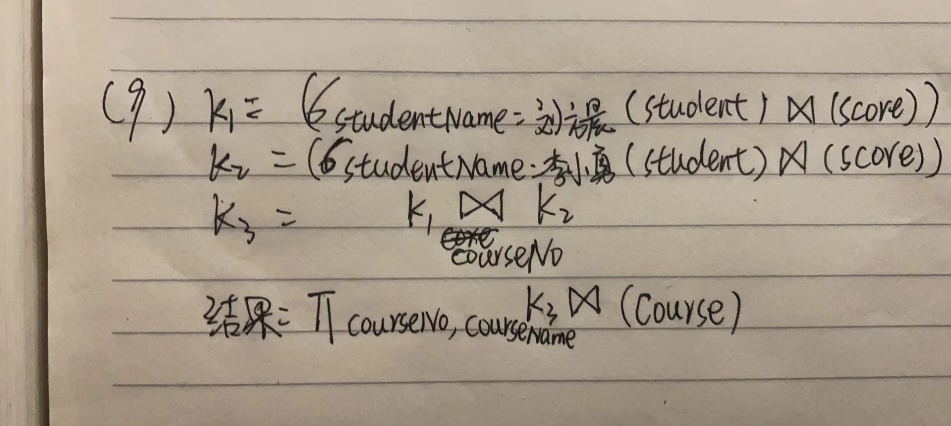 (9) K₁= (6 studentName=刘方晨 (student) ⋈ (score))
K₂ = (6 studentName=李小勇 (student) ⋈ (score))
K₃ = K₁ ⋈ K₂
courseNo
结果= π courseNo, courseName K₃ ⋈ (Course)